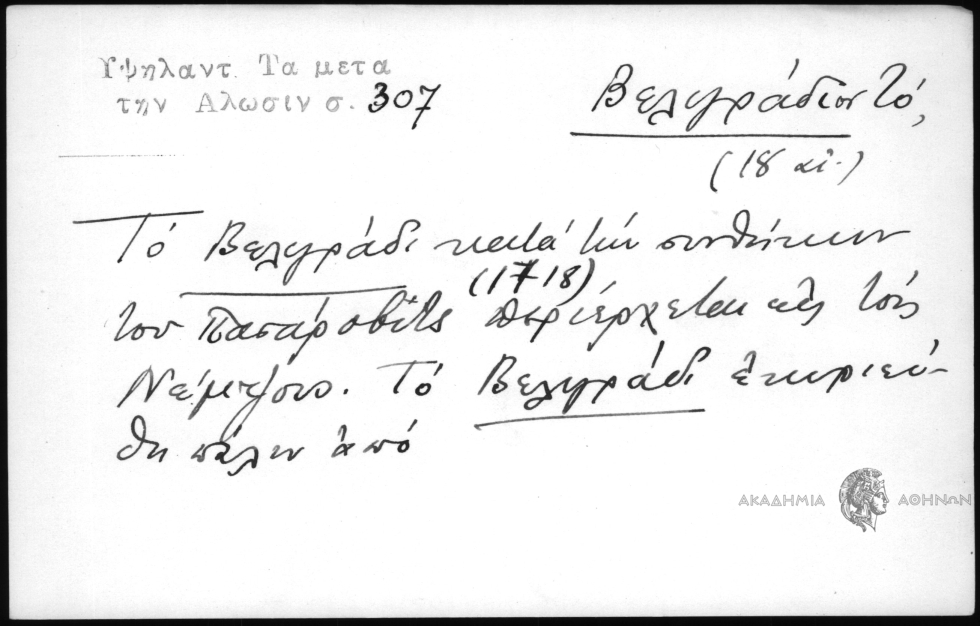 Υψηλαντ. Τα μετα
την Αλωσιν σ. 307
Βελιγράδιον Τό,
(18 αἰ.)
Τό Βελιγράδι κατά τήν συνθήκην
(1718)
του Πασάροβιτς περιέρχεται εἰς τούς
Νέμιτζους. Τό Βελιγράδι ἐκυριεύ-
θη πάλιν ἀπό
ΑΚΑΔΗΜΙΑ ΑΘΗΝΩΝ